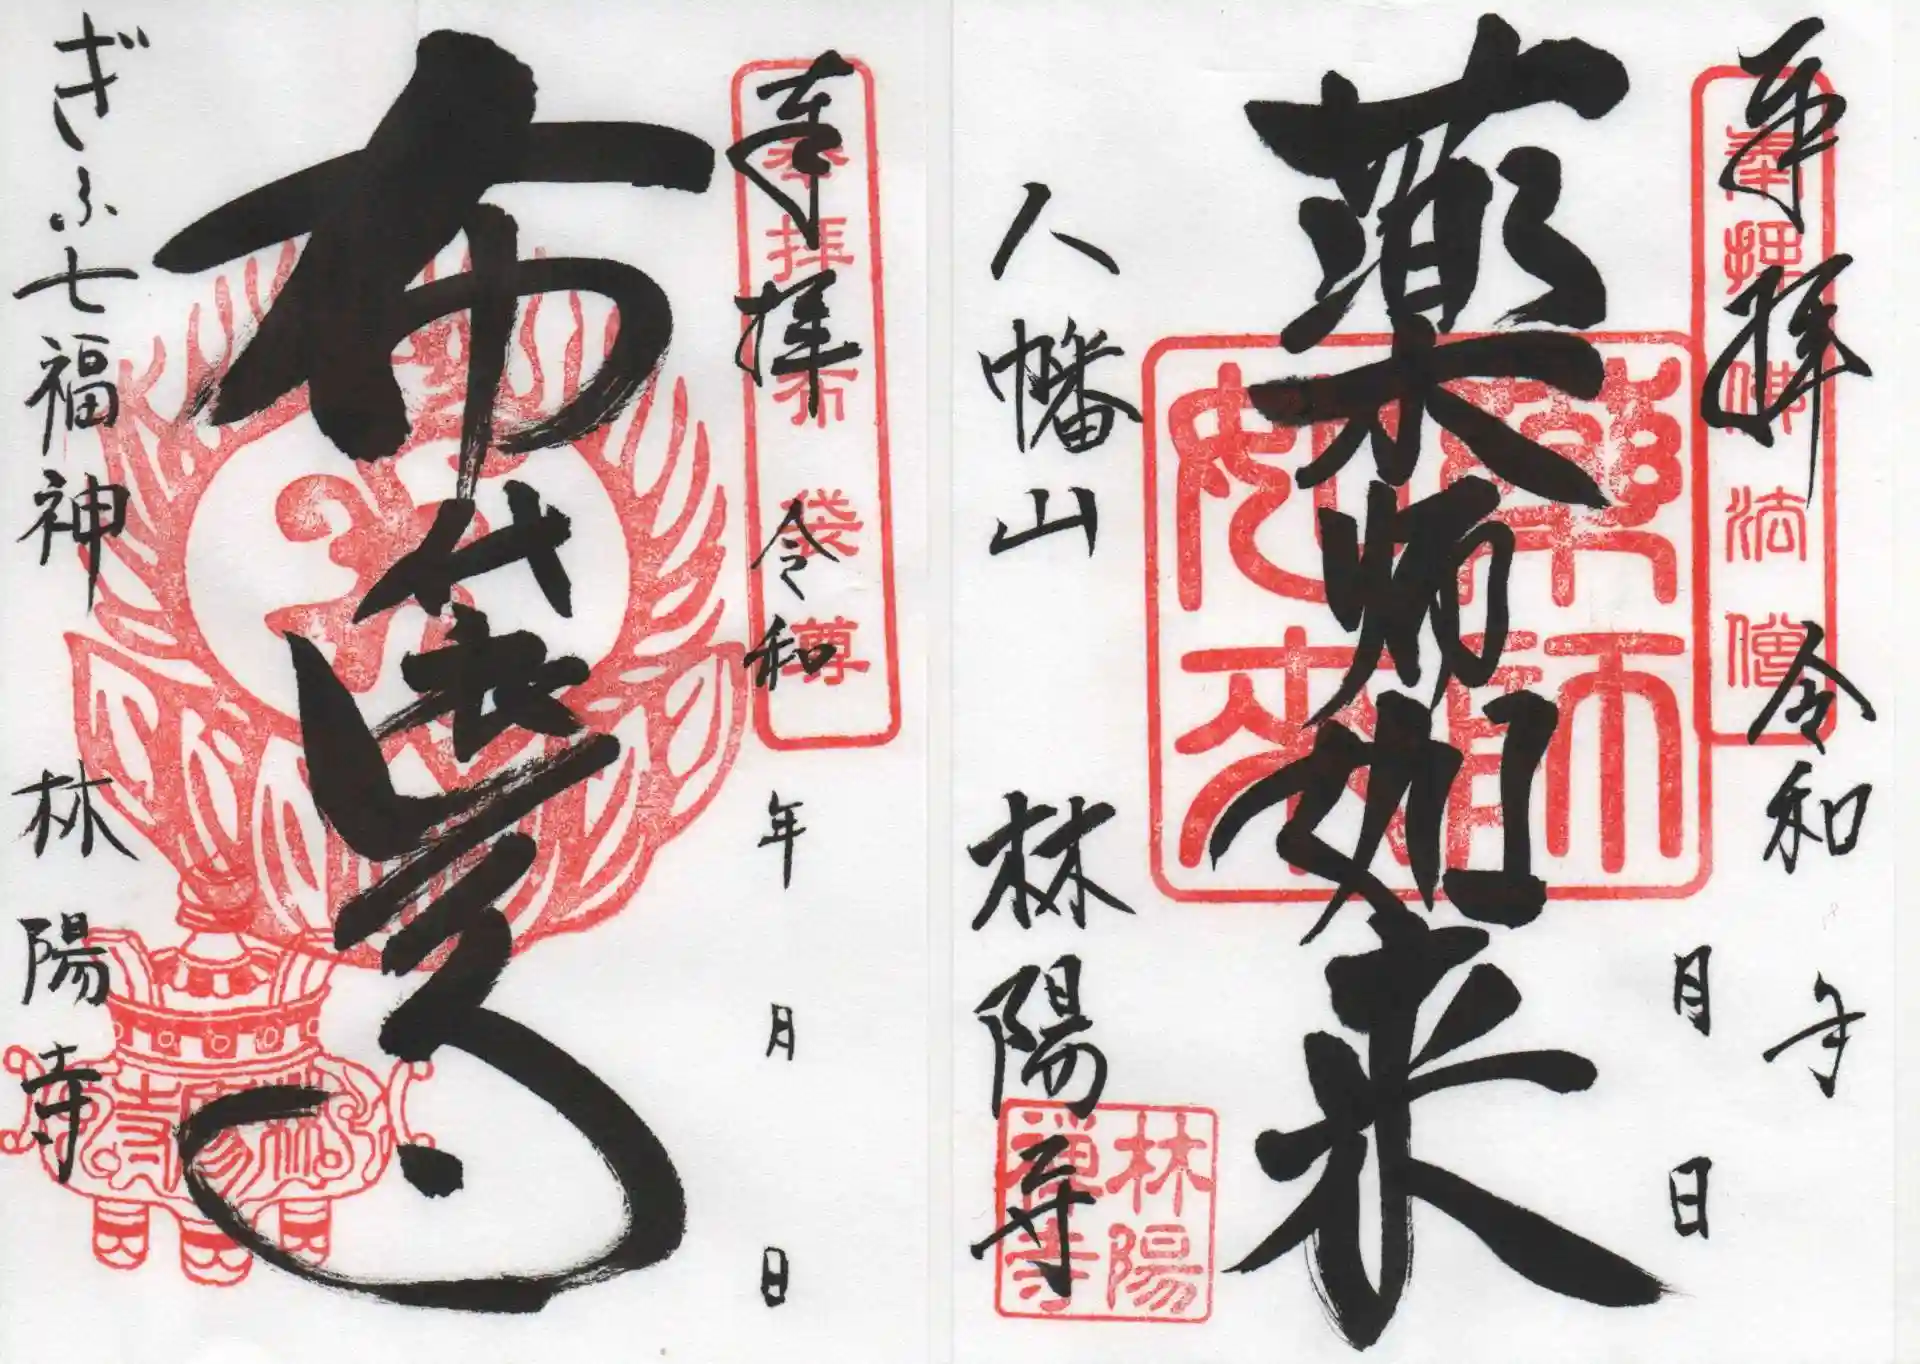 奉拝 令和 年
月 日
奉拝 佛法僧
薬師如来
薬師如来
八幡山 林陽寺
林陽禅寺
奉拝 令和 年 月 日
奉拝 布袋尊
布袋尊
ぎふ七福神 林陽寺
林陽寺